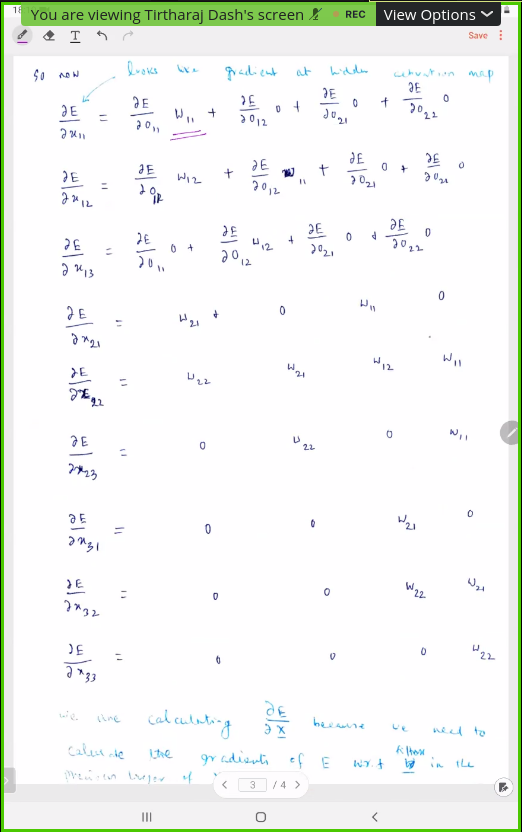 You are viewing Tirtharaj Dash's screen REC View Options
Save
So now looks like gradient at hidden activation map
∂E/∂x₁₁ = ∂E/∂O₁₁ W₁₁ + ∂E/∂O₁₂ 0 + ∂E/∂O₂₁ 0 + ∂E/∂O₂₂ 0
∂E/∂x₁₂ = ∂E/∂O₁₁ W₁₂ + ∂E/∂O₁₂ W₁₁ + ∂E/∂O₂₁ 0 + ∂E/∂O₂₂ 0
∂E/∂x₁₃ = ∂E/∂O₁₁ 0 + ∂E/∂O₁₂ W₁₂ + ∂E/∂O₂₁ 0 + ∂E/∂O₂₂ 0
∂E/∂x₂₁ = W₂₁ + 0 W₁₁ 0
∂E/∂x₂₂ = W₂₂ W₂₁ W₁₂ W₁₁
∂E/∂x₂₃ = 0 W₂₂ 0 W₁₁
∂E/∂x₃₁ = 0 0 W₂₁ 0
∂E/∂x₃₂ = 0 0 W₂₂ W₂₁
∂E/∂x₃₃ = 0 0 0 W₂₂
We are calculating ∂E/∂X because we need to
calculate the gradients of E w.r.t filter in the
previous layer of
3 / 4